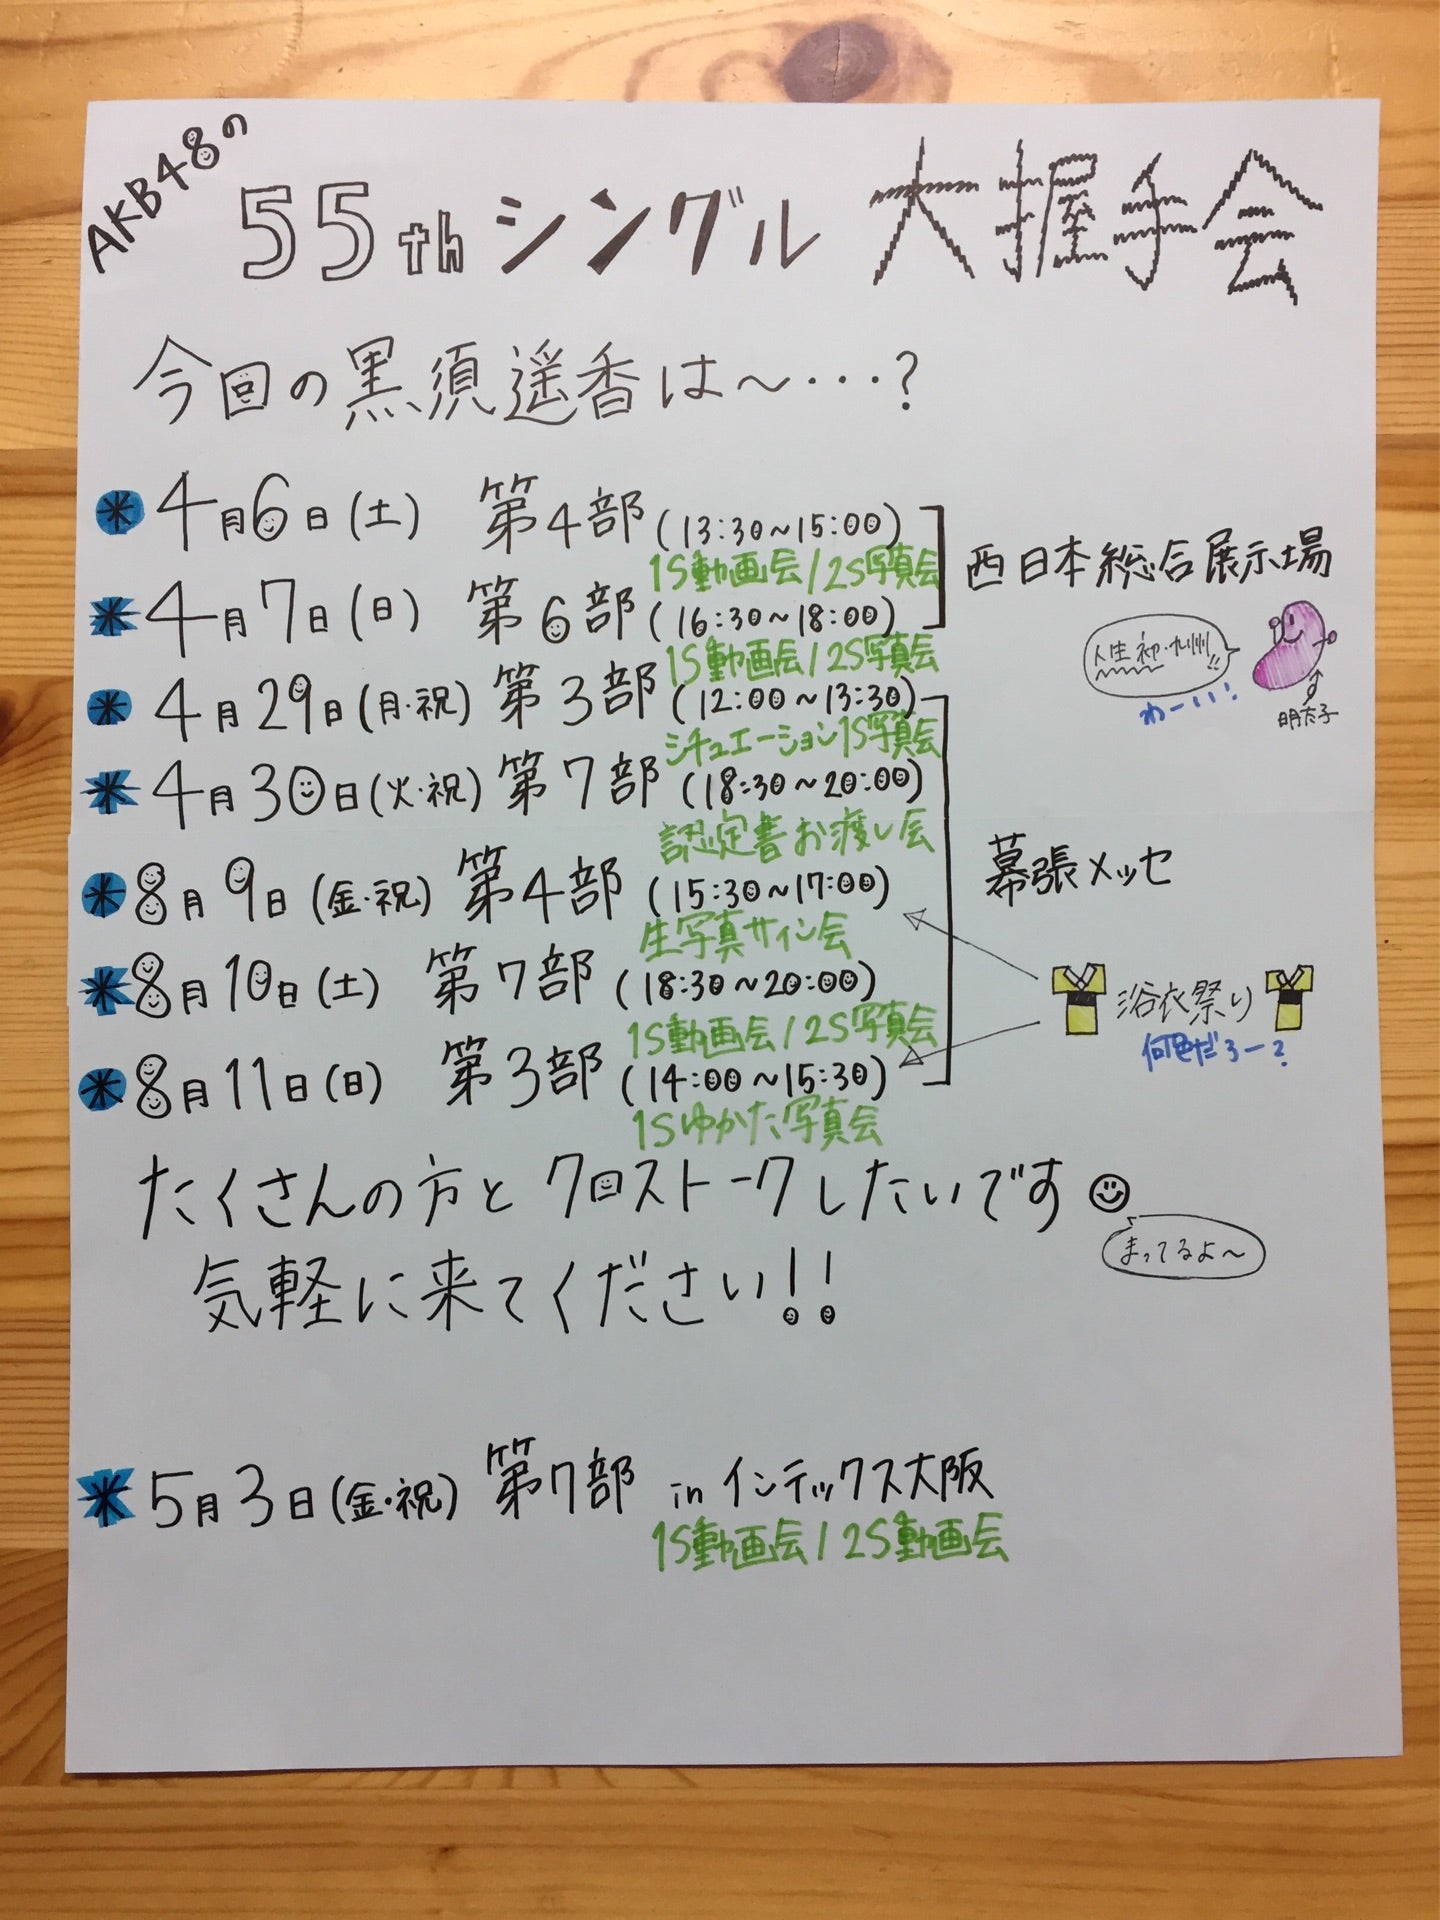 AKB48の
55thシングル 大握手会
今回の黒須遥香は〜・・・?
4月6日(土) 第4部(13:30~15:00)
1S動画会/2S写真会
西日本総合展示場
4月7日(日) 第6部(16:30~18:00)
1S動画会/2S写真会
人生初・九州!!
わーい!
明太子
4月29日(月・祝) 第3部(12:00~13:30)
シチュエーション1S写真会
4月30日(火・祝) 第7部(18:30~20:00)
認定書お渡し会
幕張メッセ
8月9日(金・祝) 第4部(15:30~17:00)
生写真サイン会
8月10日(土) 第7部(18:30~20:00)
1S動画会/2S写真会
浴衣祭り
何色だろー?
8月11日(日) 第3部(14:00~15:30)
1Sゆかた写真会
たくさんの方とクロストークしたいです
まってるよ〜
気軽に来てください!!
5月3日(金・祝) 第7部 inインテックス大阪
1S動画会/2S動画会